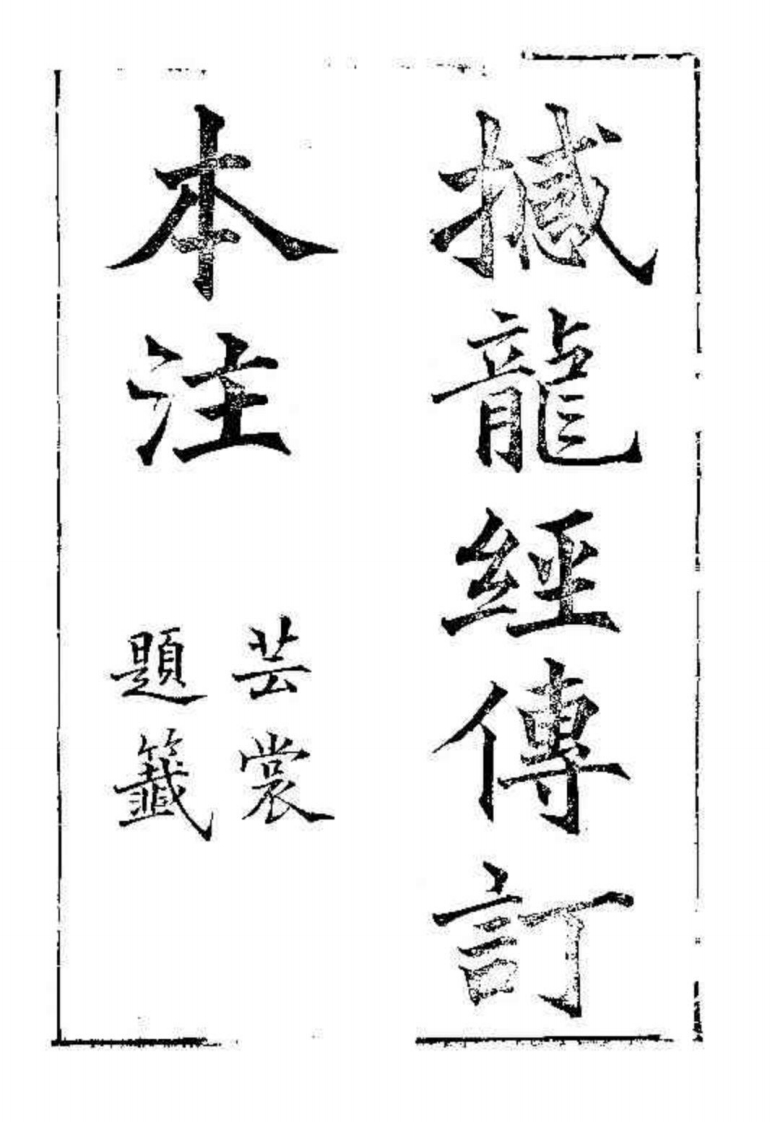 撼龍經傳訂
本注
芸裳
題籤